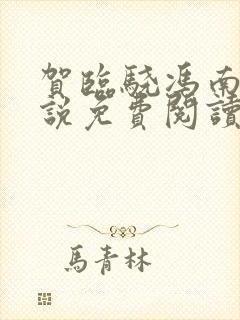 賀臨驍馮南
說免費閱讀
馬青林